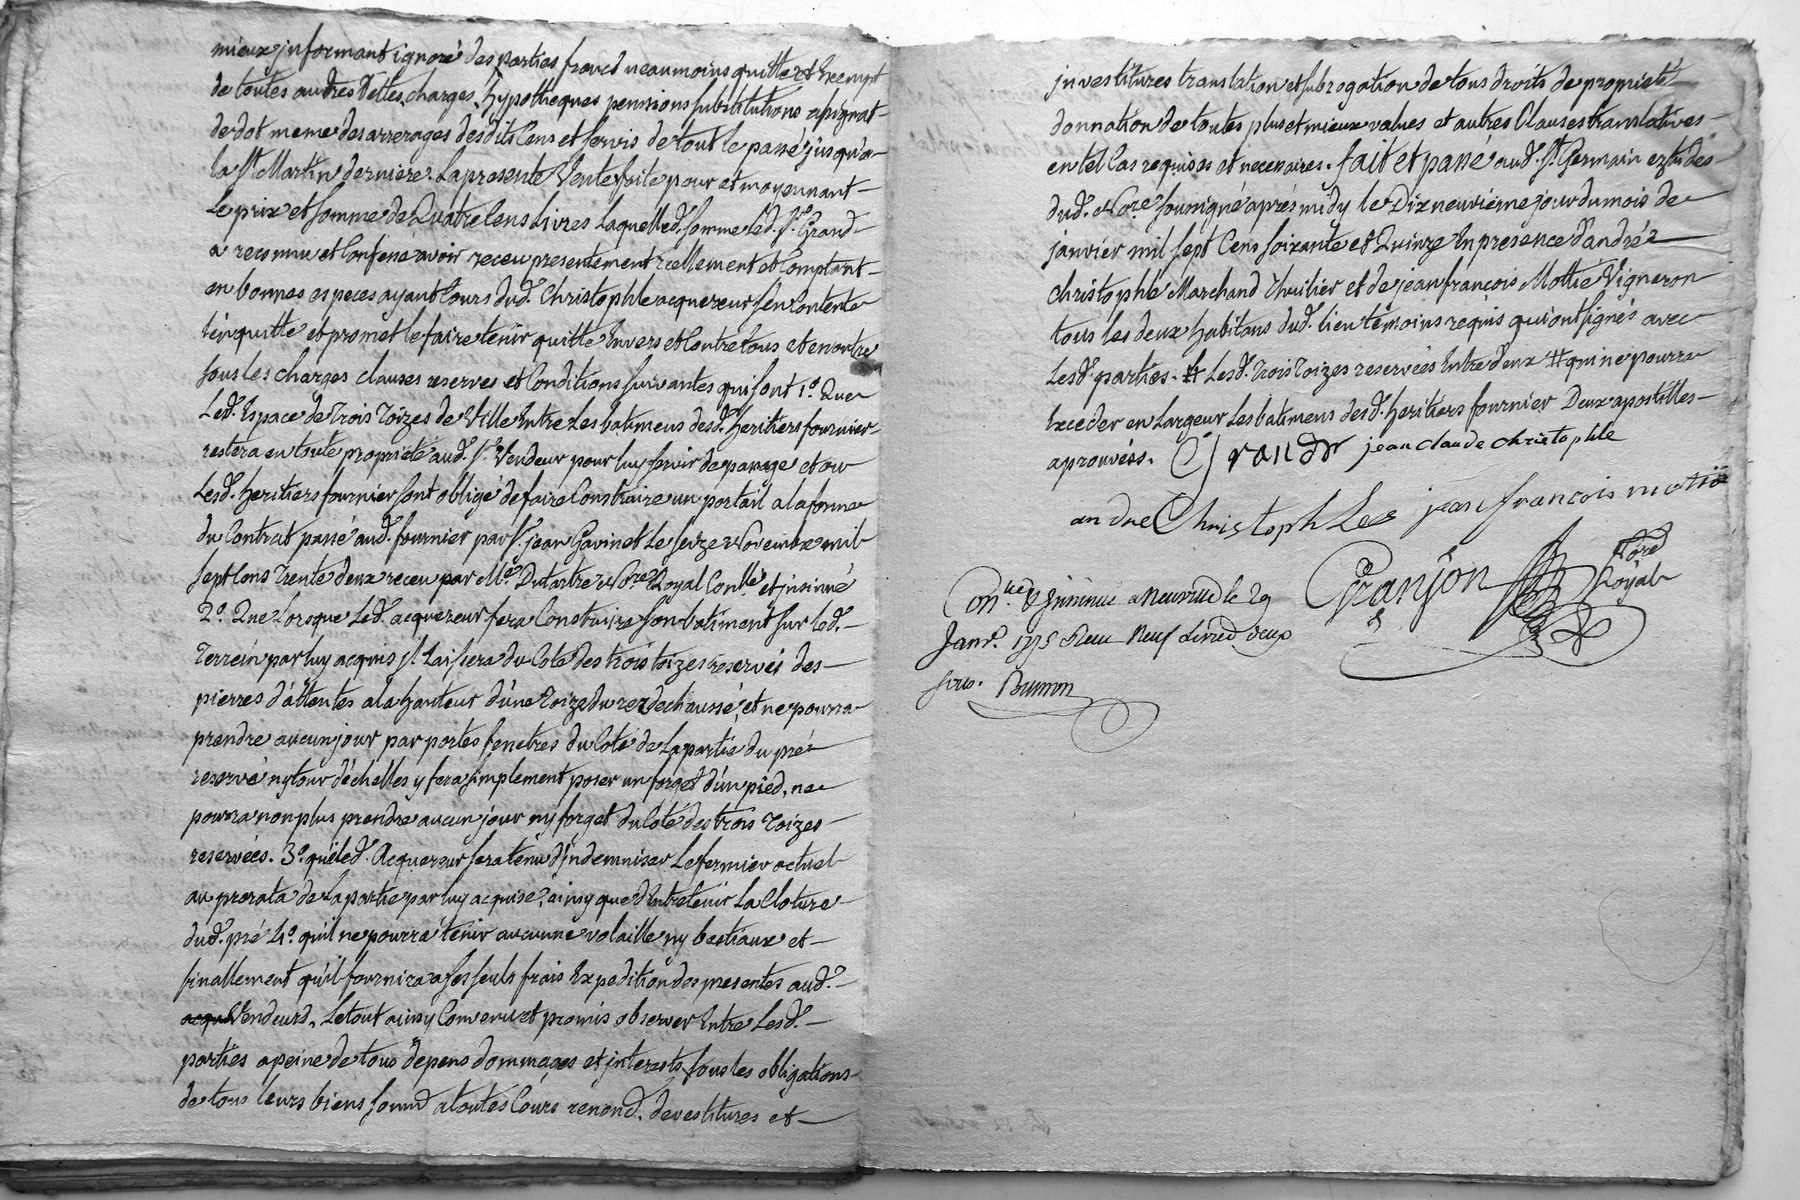 mieux informant ignoré des parties francs neanmoins quitte et Exempt
de toutes autres Dettes, charges, hypotheques pensions substitutions apignat-
de dot meme des arrerages desdits Cens et servis de tout le passé jusqu'a-
la St. Martin derniere. La presente Vente faite pour et moyennant-
Le prix et somme de Quatre Cens Livres Laquelle d. somme led. Sr. Grand-
a reconnu et Confessé avoir receu presentement reellement et Comptant-
en bonnes especes ayant Cours dud. Christophle acquereur s'en Contente
l'en quitte et promet le faire tenir quitte Envers et Contre tous et en outre
sous les charges clauses reserves et Conditions suivantes qui sont 1º. Que
Led. Espace de Trois Toizes de Ville Entre Les batimens desd. heritiers fournier-
restera en toute propriété aud. Sr. Vendeur pour luy servir de passage et ou
Lesd. heritiers fournier sont obligé de faire Construire un portail a la forme
du Contrat passé aud. fournier par Sr. jean Gavinet Le seize Novembre mil
sept Cens Trente deux receu par Me. Dutartre Nore. Royal Conllé. et insinué
2º. Que Lorsque Led. acquereur fera Construire son batiment sur led.-
Terrein par luy acquis jl Laissera du Coté des trois toizes reservés des-
pierres d'attentes a la hauteur d'une Toize du rez de chaussé, et ne pourra
prendre aucun jour par portes fenetres du Coté de La partie du pré-
reservé ny tour d'échelles y fera simplement poser un forget d'un pied, ne
pourra non plus prendre aucun jour ny forget du Coté des trois Toizes-
reservées. 3º. que led. Acquereur sera tenu d'indemniser Le fermier actuel
au prorata de La partie par luy acquise, ainsy que d'Entretenir La Cloture
dud. pré 4º. qu'il ne pourra tenir aucunne volaille ny bestiaux et-
finallement qu'il fournira a ses seuls frais Expedition des presentes aud.-
acqu Vendeurs. Le tout ainsy Convenu et promis observer Entre Lesd.-
parties a peine de tous depens dommages et interests sous les obligations-
de tous leurs biens soumd. a toutes Cours renond. devestitures et-
jnvestitures translation et subrogation de tous droits de proprieté
donnation de toutes plus et mieux values et autres Clauses translatives-
en tel Cas requises et necessaires. fait et passé aud. St. Germain etudes-
dud. Nore. soussigné aprés midy le Dix neuvieme jour du mois de
janvier mil sept Cens soixante et Quinze En presence d'andré
christophle Marchand Thuilier et de jean françois Mottie Vigneron
tous les deux habitans dud. lieu témoins requis qui ont signés avec
Lesd. parties. # Lesd. Trois Toizes reservées Entre d'eux # qui ne pourra
Exceder en Largeur Les batimens desd. heritiers fournier Deux apostilles-
aprouvées. Grandr jean claude christophle
andre Christophle jean francois motié
Granjon Nore. Royal
Conlle. & Jnsinué a Neuville le 29
Janvr. 1775 Receu Neuf Livres deux
sous. Bumon